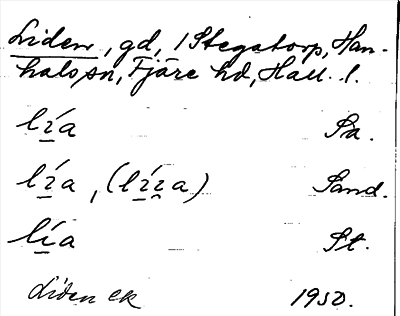 Liden, gd, 1 Stegatorp, Han-
hals sn, Fjäre hd, Hall. l.
lí̱a Sa.
lí̱a, (lí̱i̱a) Sand.
lí̱a St.
Liden ek 1950.